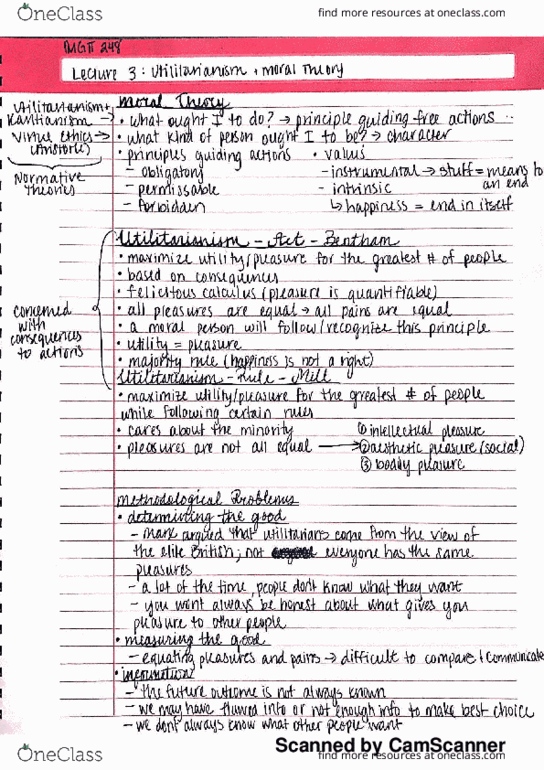 OneClass
find more resources at oneclass.com
MGT 248
Lecture 3: Utilitarianism + Moral Theory
Utilitarianism +
Kantianism →
Virtue ethics →
(Aristotle)
Normative
Theories
Moral Theory
• what ought I to do? → principle guiding free actions
• what kind of person ought I to be? → character
• principles guiding actions • values
- obligatory - instrumental → stuff = means to an end
- permissable - intrinsic
- forbidden ↳ happiness = end in itself
concerned
with
consequences
to actions
Utilitarianism - Act - Bentham
• maximize utility/pleasure for the greatest # of people
• based on consequences
• felicitous calculus (pleasure is quantifiable)
• all pleasures are equal → all pains are equal
• a moral person will follow/recognize this principle
• utility = pleasure
• majority rule (happiness is not a right)
Utilitarianism - Rule - Mill
• maximize utility/pleasure for the greatest # of people
while following certain rules
• cares about the minority ① intellectual pleasure
• pleasures are not all equal → ② aesthetic pleasure (social)
③ bodily pleasure
Methodological Problems
• determining the good
- Marx argued that utilitarians come from the view of
the elite British; not everyone has the same
pleasures
- a lot of the time, people don't know what they want
- you wont always be honest about what gives you
pleasure to other people
• measuring the good
- equating pleasures and pains → difficult to compare + communicate
• information
- the future outcome is not always known
- we may have flawed info or not enough info to make best choice
- we don't always know what other people want
Scanned by CamScanner
OneClass
find more resources at oneclass.com